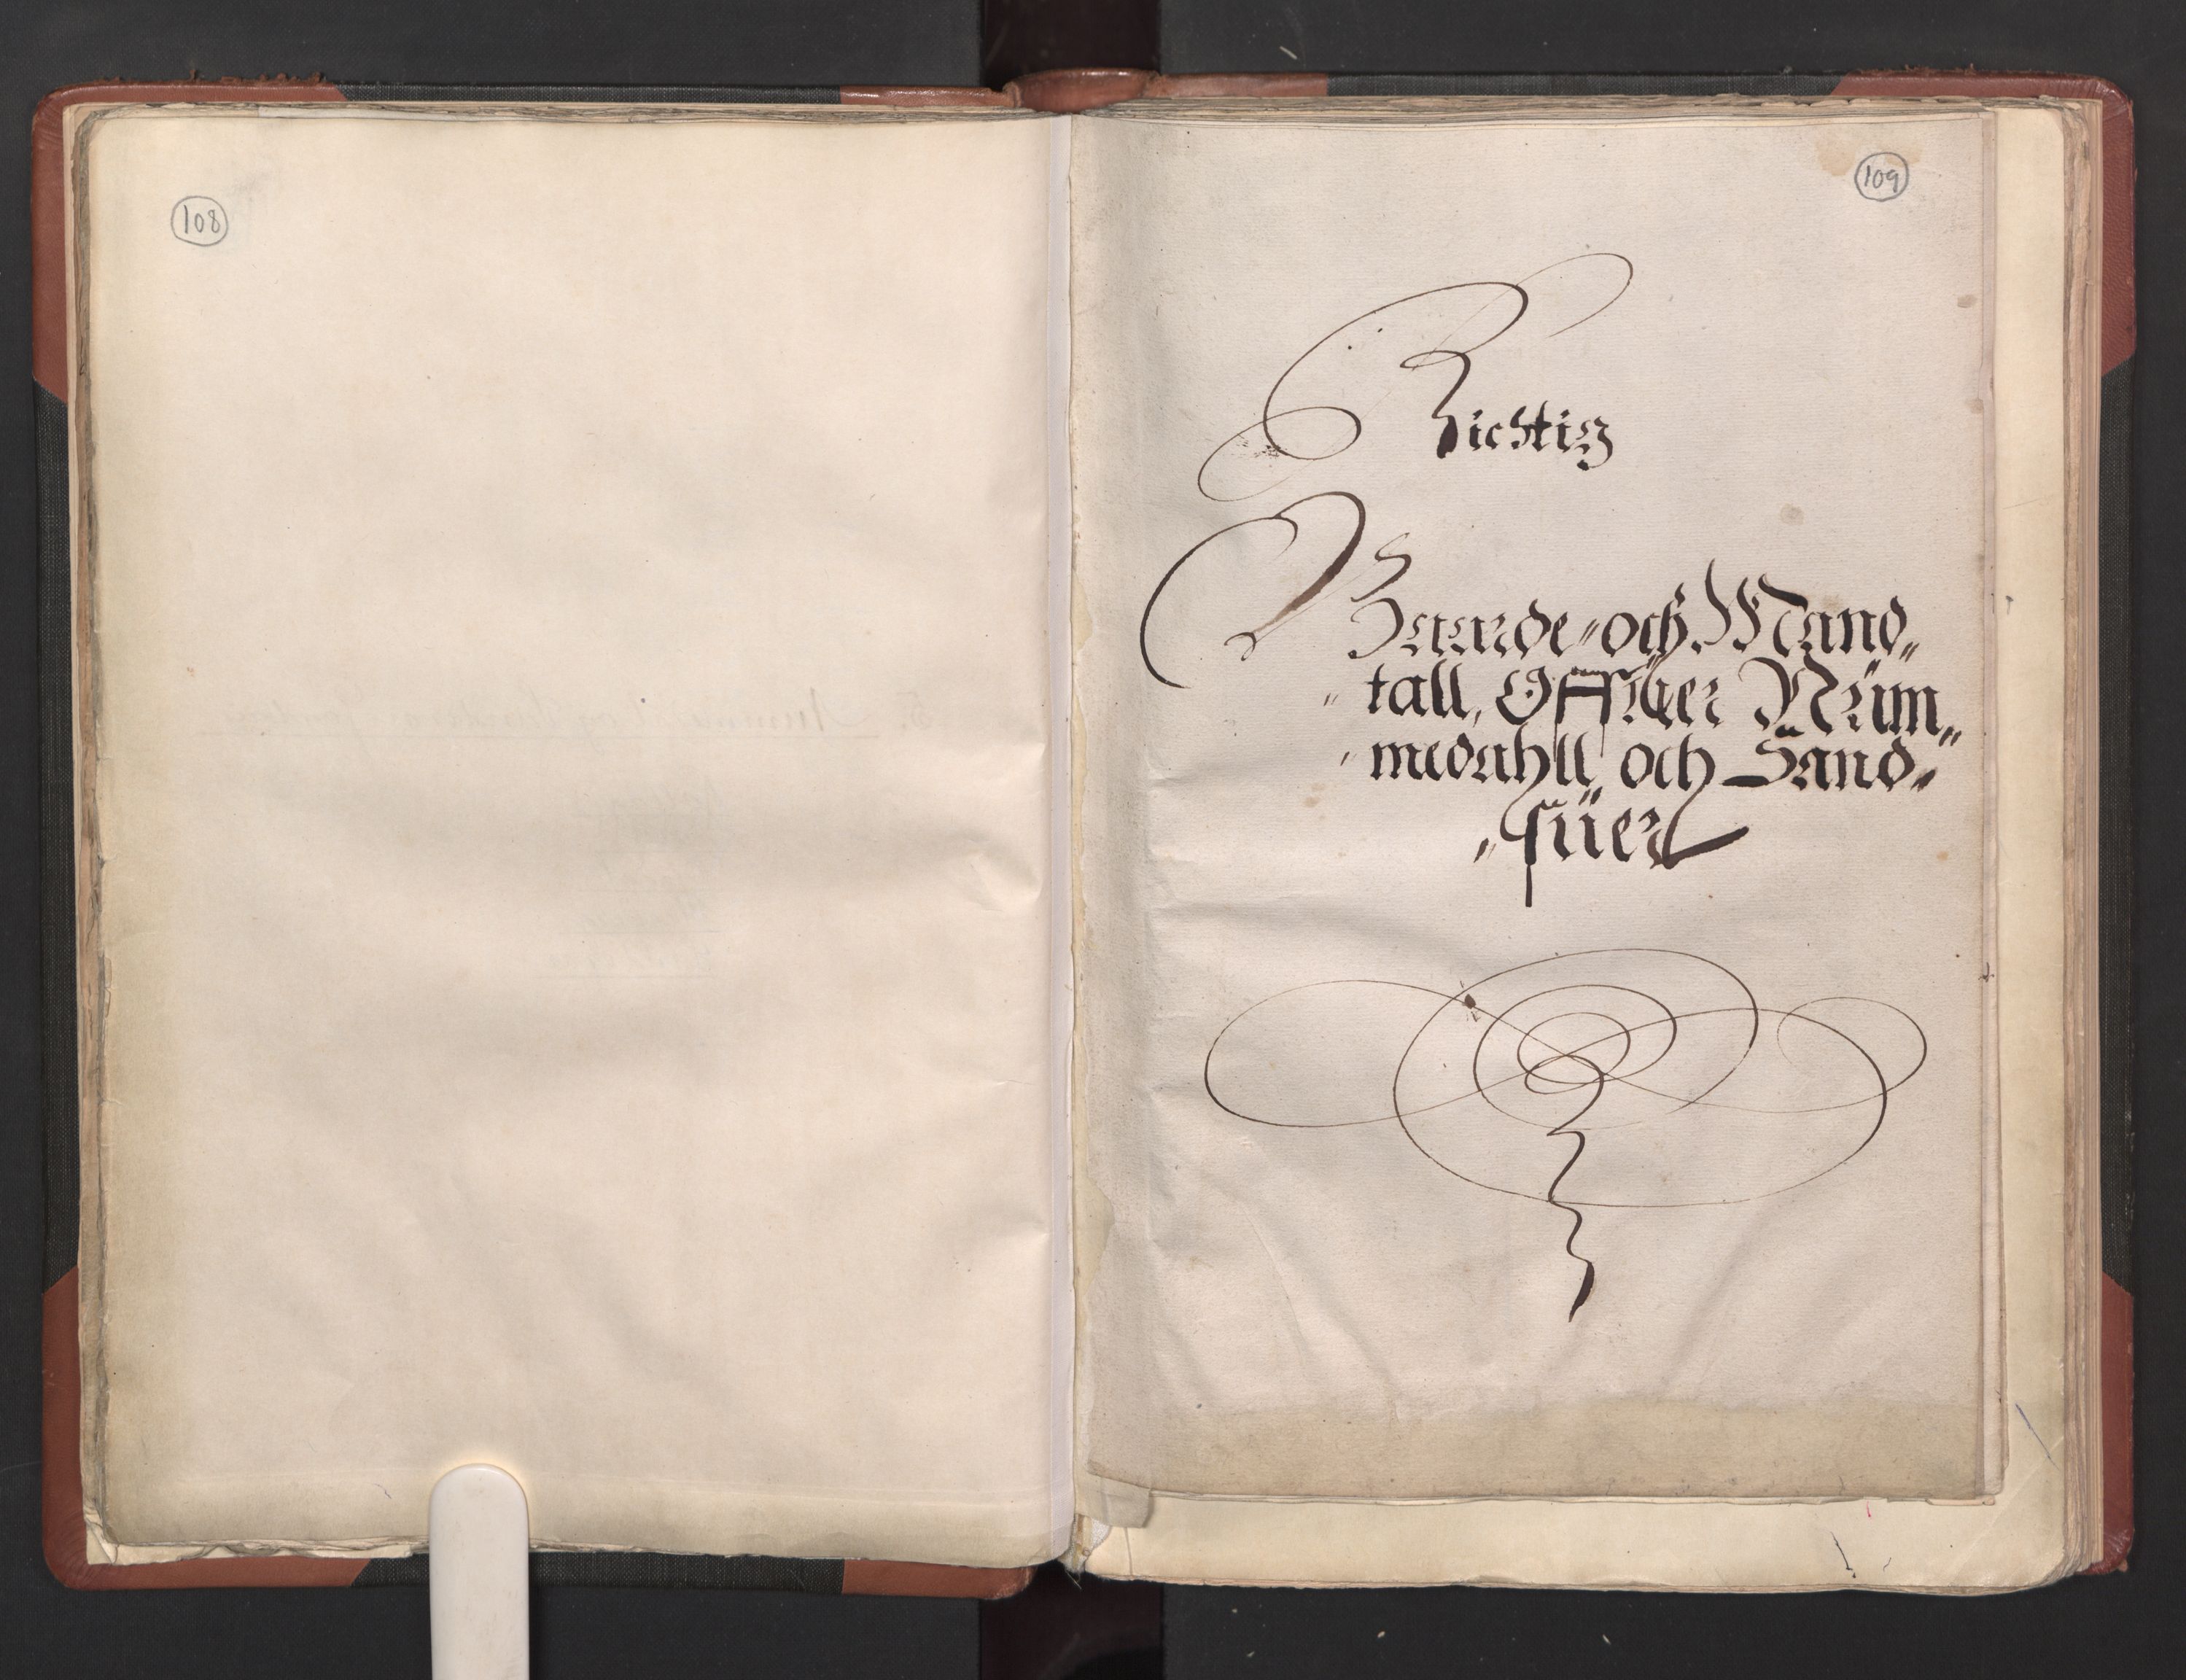 108
109
Richtig
Jaurde- och Mand-
tall, offuer Nüm-
medahll och Sand-
suer